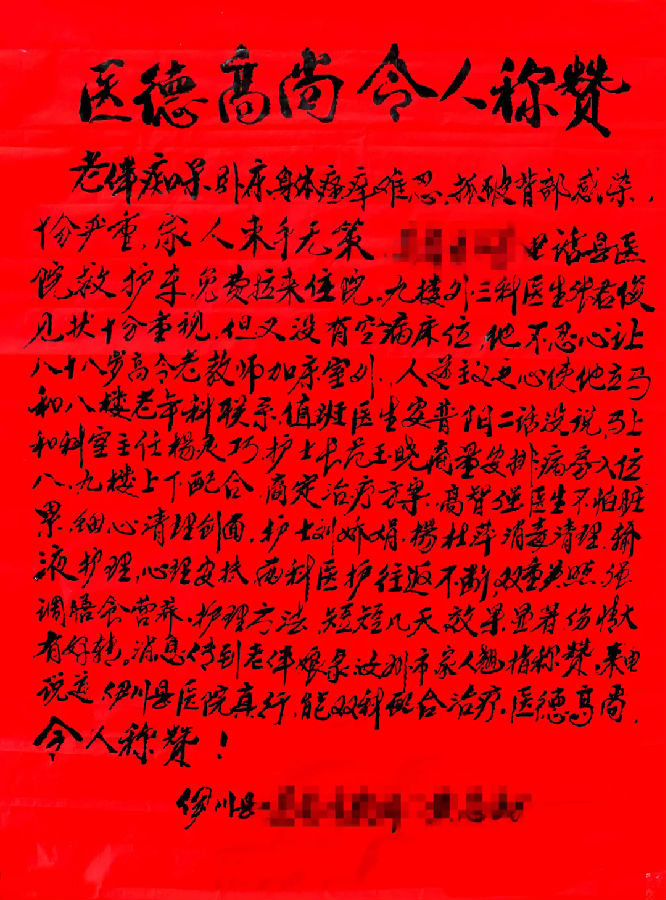 医德高尚令人称赞
老伴痴呆,卧床,身体瘙痒难忍,抓破背部感染,
十分严重,家人束手无策, 电话县医
院救护车,免费拉来住院,九楼外三科医生张君俊
见状十分重视,但又没有空病床位,他不忍心让
八十八岁高令老教师加床室外,人道主义之心使他立马
和八楼老年科联系,值班医生安普阳二话没说,马上
和科室主任杨 巧,护士长范玉晓商量安排病房入位
八、九楼上下配合,商定治疗方案,高智强医生不怕脏
累,细心清理创面,护士刘娇娟、杨杜萍消毒清理,输
液护理,心理安抚,两科医护往返不断,双重关照,强
调膳食营养,护理方法,短短几天效果显著伤情大
有好转。消息传到老伴娘家汝州市家人翘指称赞,来电
说道,伊川县医院真行,能双科配合治疗,医德高尚,
令人称赞!
伊川县